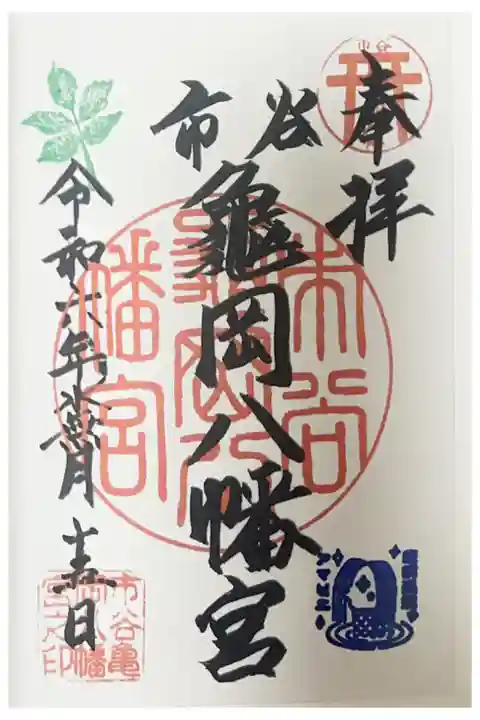 奉拝
市谷
亀岡八幡宮
令和六年水無月吉日
市谷
亀岡八
幡宮
市谷亀
岡八幡
宮之印